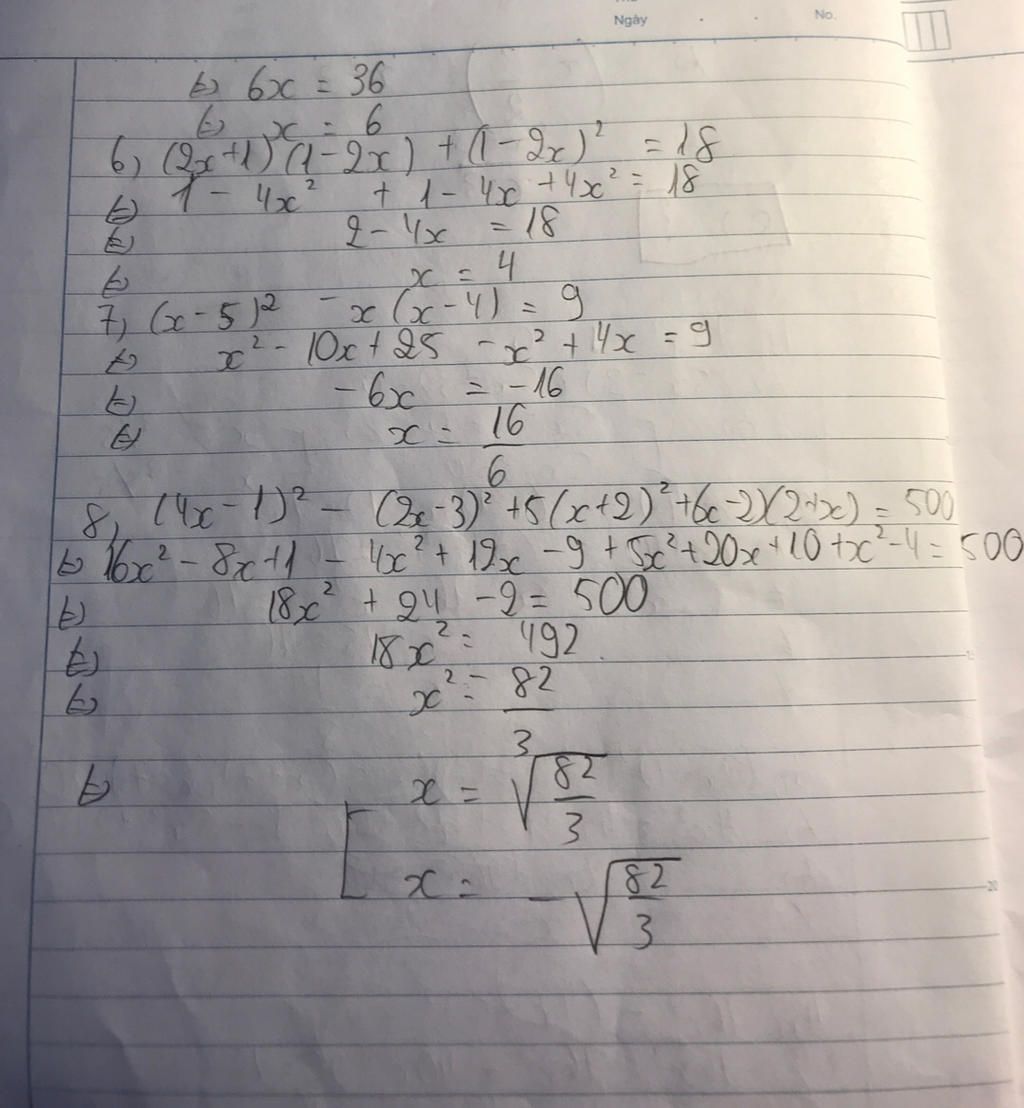 Ngày . . No.
⇔ 6x = 36
⇔ x = 6
6, (2x+1)(1-2x) + (1-2x)² = 18
⇔ 1 - 4x² + 1 - 4x + 4x² = 18
⇔ 2 - 4x = 18
⇔ x = 4
7, (x-5)² - x(x-4) = 9
⇔ x² - 10x + 25 - x² + 4x = 9
⇔ -6x = -16
⇔ x = 16/6
8, (4x-1)² - (2x-3)² + 5(x+2)² + (x-2)(2+x) = 500
⇔ 16x² - 8x + 1 - 4x² + 12x - 9 + 5x² + 20x + 10 + x² - 4 = 500
⇔ 18x² + 24 - 2 = 500
⇔ 18x² = 492
⇔ x² = 82/3
⇔ x = √(82/3)
x = -√(82/3)
20